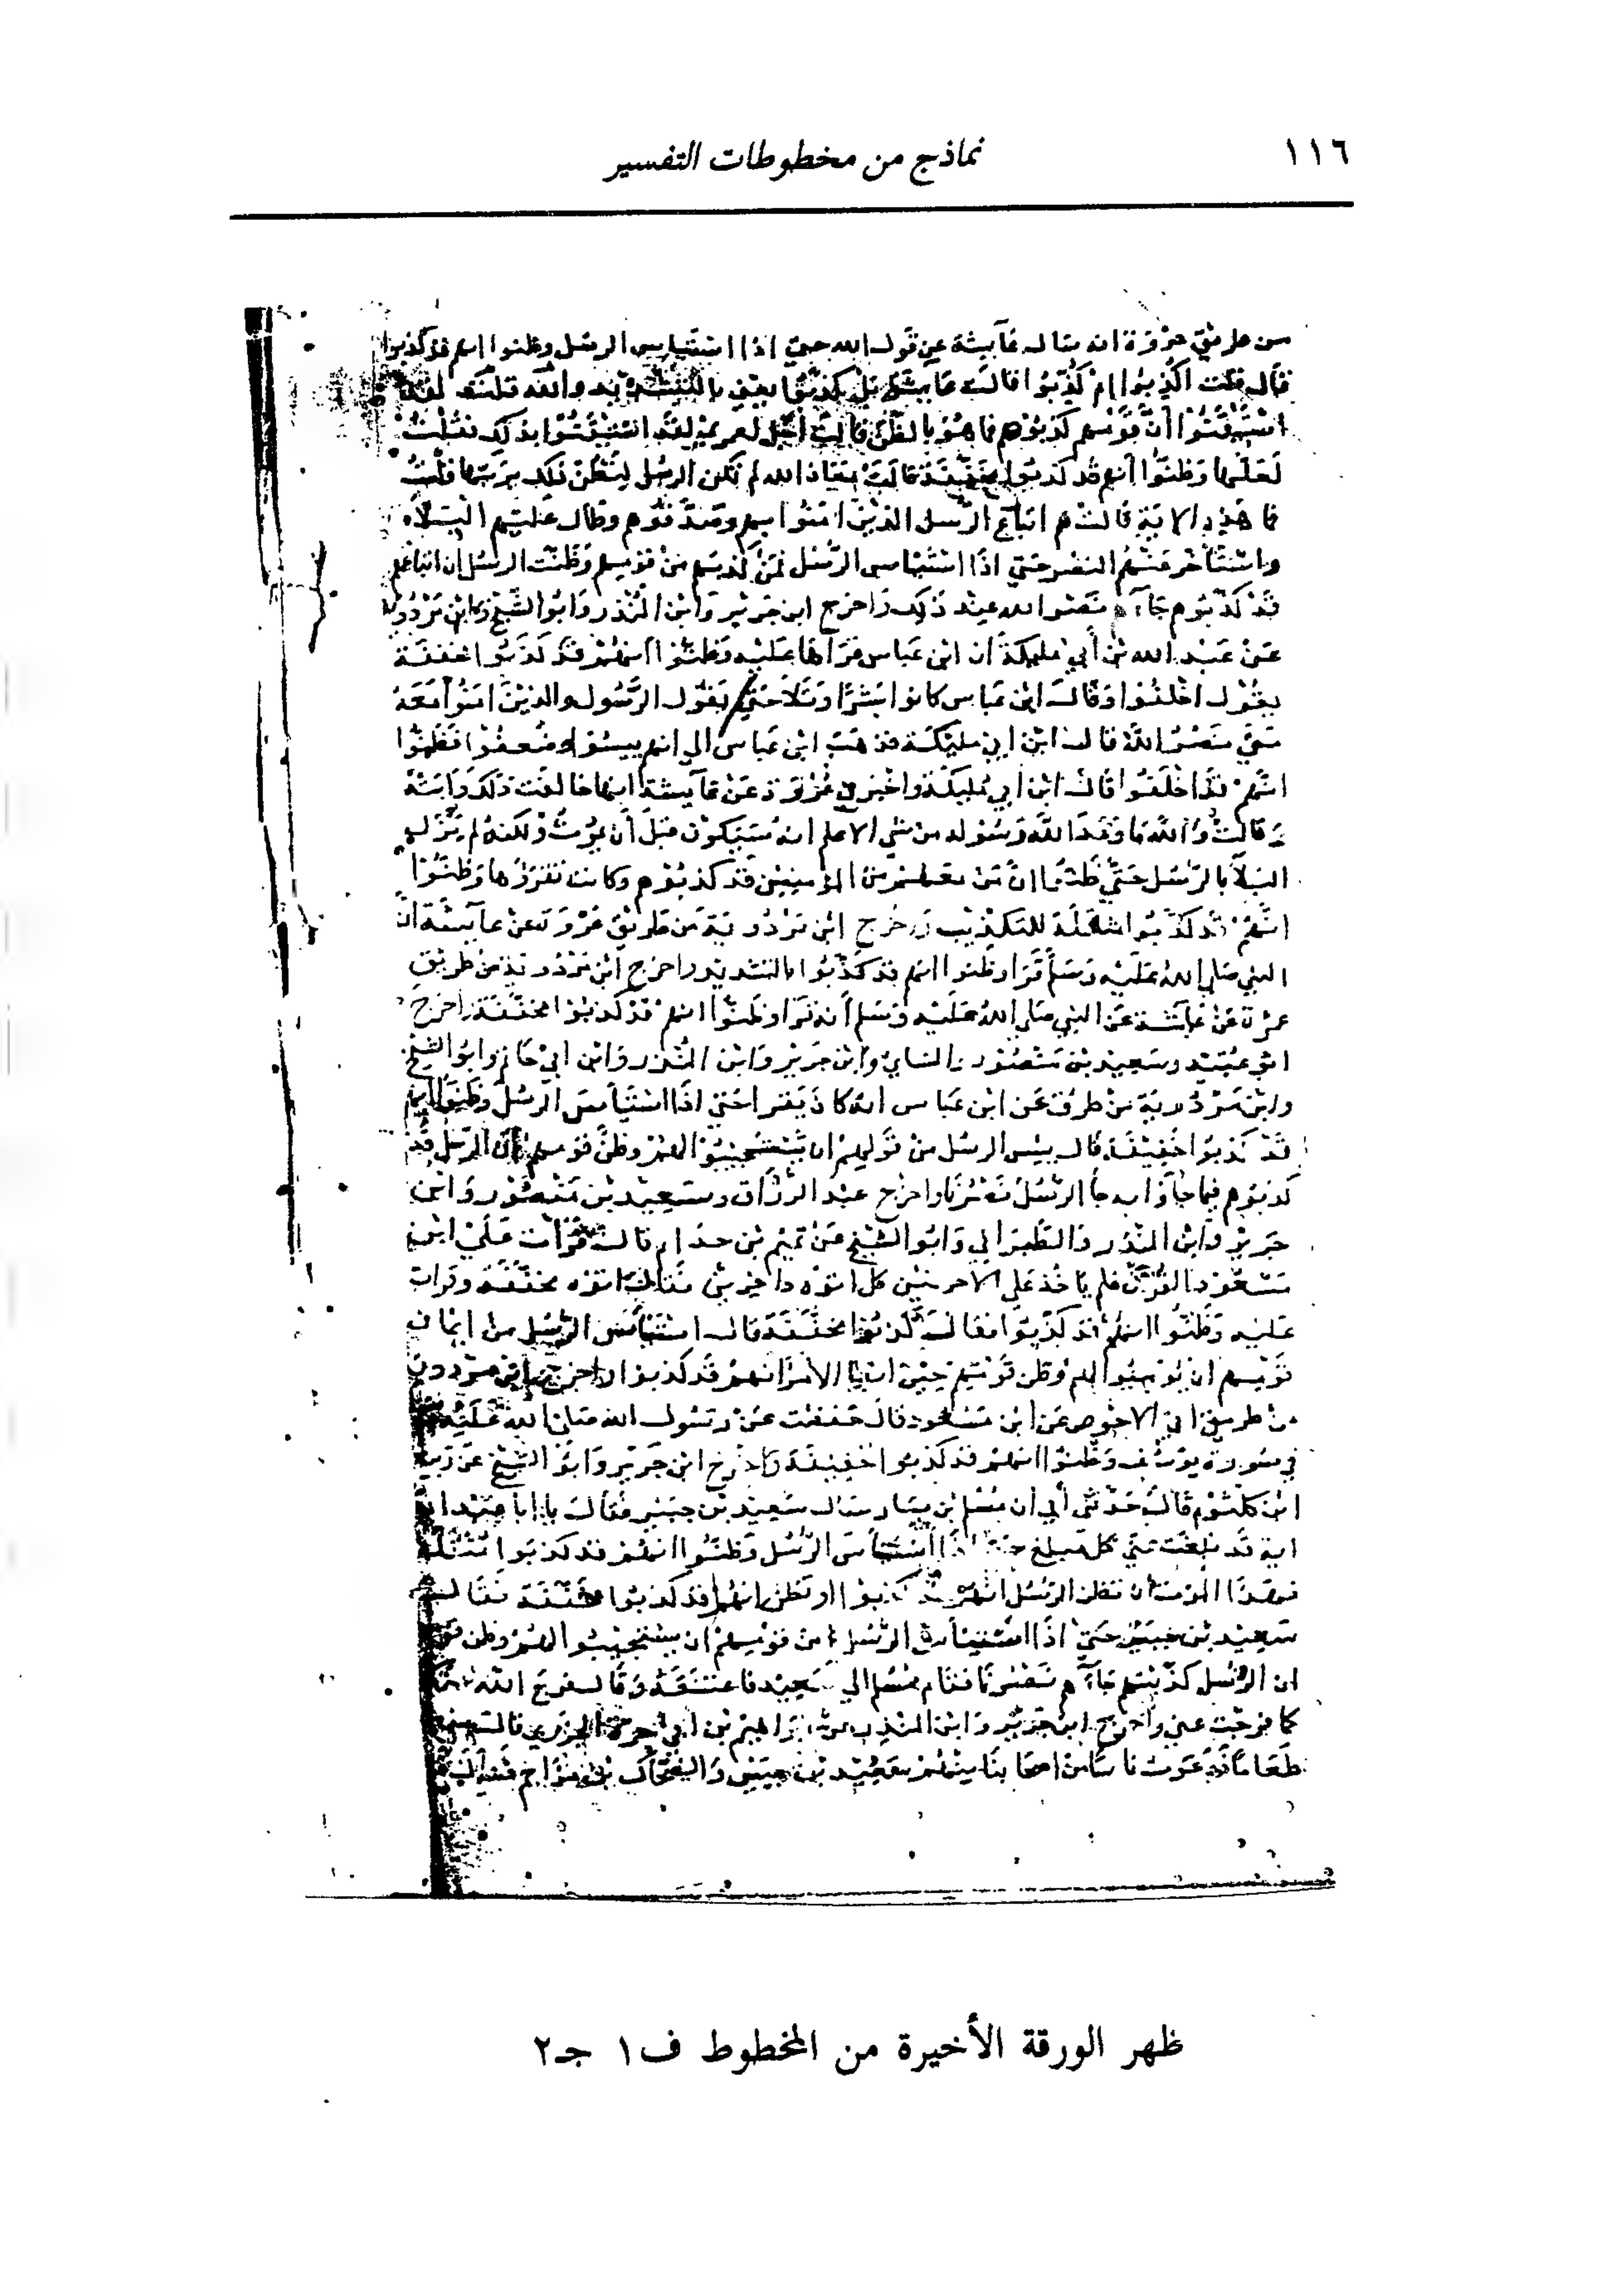 ١١٦
نماذج من مخطوطات التفسير
من طريق عروة انه سال عآيشة عن قول الله حتى اذا استيأس الرسل وظنوا انهم قد كذبوا
قال قلت اكُذِبُوا ام كُذِّبُوا قالت عايشة بل كذبوا يعني بالتشديد والله قلت لقد
استيقنوا أنّ قومهم كذبوهم فما هو بالظن قالت أجل لعمري لقد استيقنوا بذلك فقلت
لعلها وظنوا أنهم قد كذبوا مخففة قالت معاذ الله لم تكن الرسل لتظن ذلك بربها قلت
فما هذه الاية قالت هم اتباع الرسل الذين امنوا بربهم وصدقوهم وطال عليهم البلآء
واستأخر عنهم النصر حتي اذا استيأس الرسل ممن كذبهم من قومهم وظنت الرسل ان اتباعهم
قد كذبوهم جآءهم نصر الله عند ذلك واخرج ابن جرير وابن المنذر وابو الشيخ وابن مردويه
عن عبد الله بن أبي مليكة ان ابن عباس قرأها عليه وظنوا انهم قد كذبوا مخففة
يقول اخلفوا وقال ابن عباس كانوا بشرًا وتلا حتي يقول الرسول والذين امنوا معه
متي نصر الله قال ابن ابي مليكة فذهب ابن عباس الي انهم ييسوا وضعفوا فظنوا
انهم قد اخلفوا قال ابن أبي مليكة واخبرني عروة عن عآيشة انها خالفت ذلك وابته
وقالت والله ما وعد الله رسوله من شي الا علم انه سيكون قبل أن يموت ولكنه لم يزل
البلآ بالرسل حتي ظنوا انّ من معهم من المؤمنين قد كذبوهم وكانت تقرؤها وظنوا
انهم قد كذبوا مثقلة للتكذيب واخرج ابن مردوية من طريق عروة عن عآيشة ان
النبي صلي الله عليه وسلم قرا وظنوا انهم قد كذبوا بالتشديد واخرج ابن مردوية من طريق
عمرة عن عائشة عن النبي صلي الله عليه وسلم أنه قرا وظنوا انهم قد كذبوا مخففة واخرج
ابو عبيد وسعيد بن منصور والنساي وابن جرير وابن المنذر وابن ابي حاتم وابو الشيخ
وابن مردوية من طرق عن ابن عباس انه كان يقرا حتي اذا استيأس الرسل وظنوا انهم
قد كذبوا خفيفة قال ييس الرسل من قومهم ان يستجيبوا لهم وظن قومهم أن الرسل قد
كذبوهم فيما جاؤا به جآ الرسل نصرنا واخرج عبد الرزاق وسعيد بن منصور وابن
جرير وابن المنذر والطبراني وابو الشيخ عن تميم بن حذلم قال قرات علي ابن
مسعود القرآن فلم ياخذ علي الا حرفين كل اتوه داخرين فقال اتوه مخففة وقرات
عليه وظنوا انهم قد كذبوا فقال كذبوا مخففة قال استيأس الرسل من ايمان
قومهم ان يومنوا لهم وظن قومهم حين ابطا الامر انهم قد كذبوا واخرج ابن مردوية
من طريق ابي الاحوص عن ابن مسعود قال حفظت عن رسول الله صلي الله عليه
في سورة يوسف وظنوا انهم قد كذبوا خفيفة واخرج ابن جرير وابو الشيخ عن ربيعة
ابن كلثوم قال حدثني أبي أن مسلم بن يسار سال سعيد بن جبير فقال يا ابا عبد الله
اية قد بلغت مني كل مبلغ حتى اذا استيأس الرسل وظنوا انهم قد كذبوا مثقلة
فهذا الموت أن تظن الرسل انهم قد كذبوا او تظن انهم قد كذبوا مخففة فقال
سعيد بن جبير حتي اذا استيأس الرسل من قومهم ان يستجيبوا لهم وظن قومهم
ان الرسل كذبتهم جآءهم نصرنا فقام مسلم الي سعيد فاعتنقه وقال فرج الله عنك
كما فرجت عني واخرج ابن جرير وابن المنذر عن ابراهيم بن ابي حرة الجزري قال صنعت
طعاما فدعوت ناسًا من اصحابنا منهم سعيد بن جبير والضحاك بن مزاحم فسأل
ظهر الورقة الأخيرة من المخطوط ف١ جـ٢